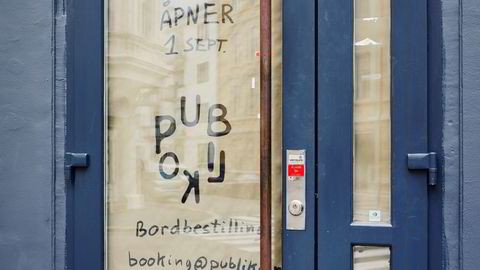 ÅPNER
1 SEPT.
PUBLIKO
Bordbestilling
booking@publik